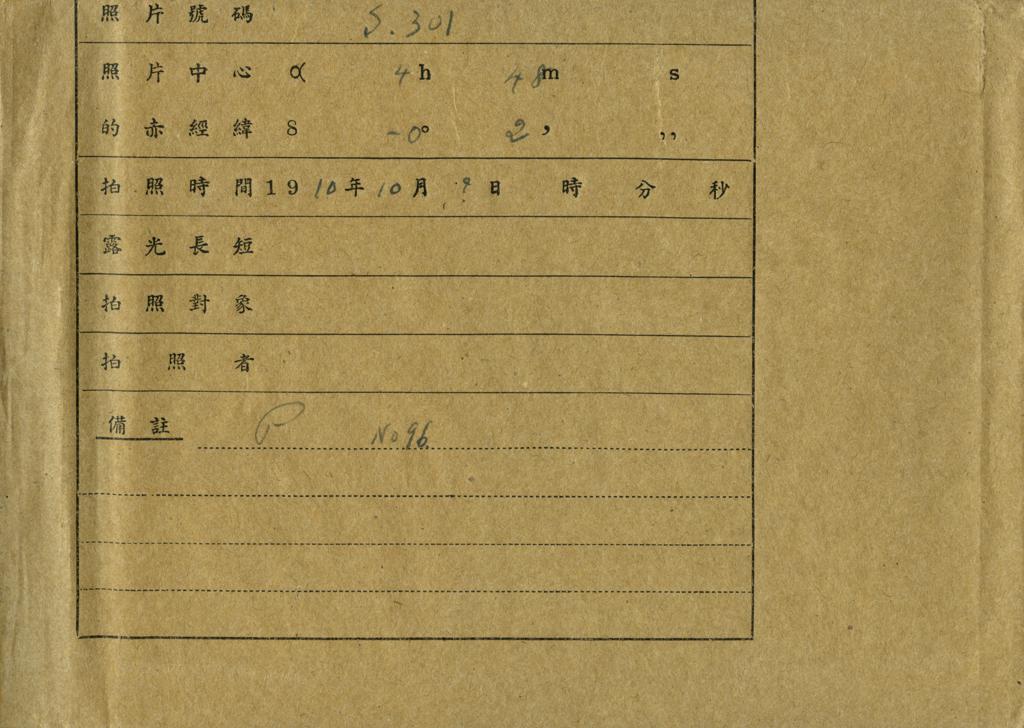 照片號碼 S.301
照片中心 α 4h 48m s
的赤經緯 δ -0° 2' ''
拍照時間 1910年10月9日 時 分 秒
露光長短
拍照對象
拍照者
備註 P No 96